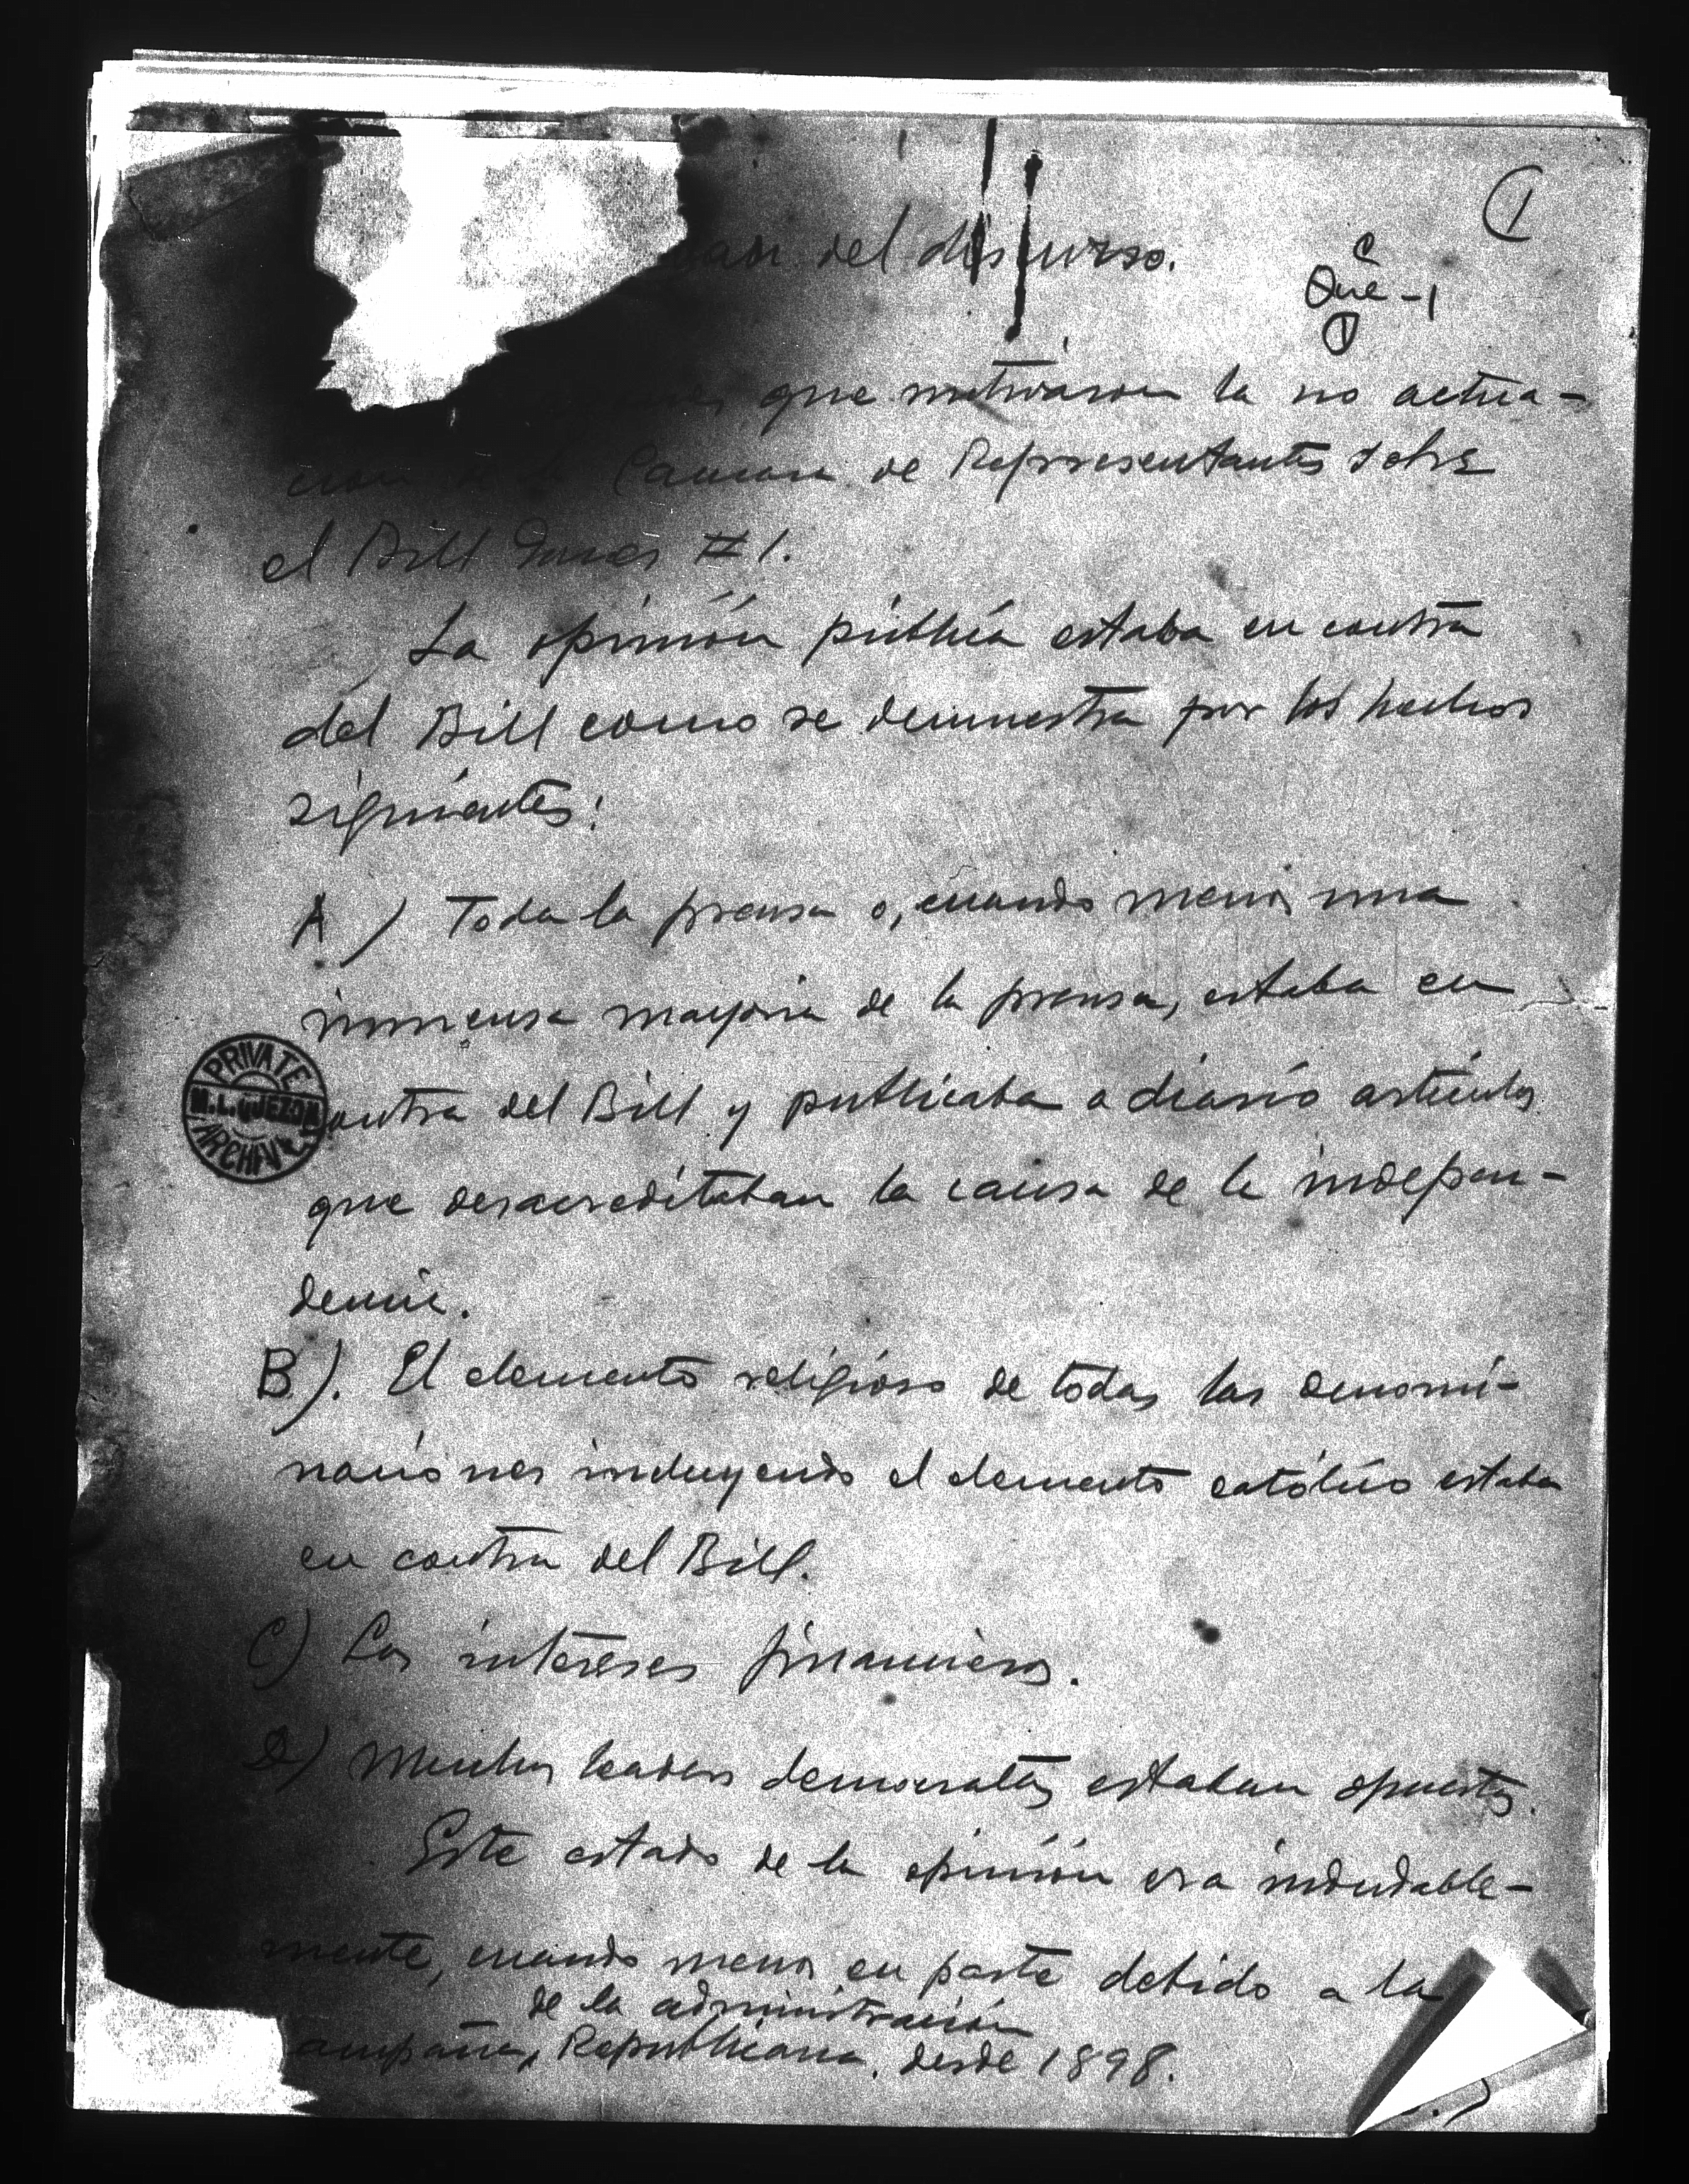 1
del discurso.
Que-1
que motivaron la no actua-
cion de la Camara de Representantes sobre
el Bill Jones #1.
La opinión pública estaba en contra
del Bill como se demuestra por los hechos
siguientes:
A) Toda la prensa o, cuando menos una
inmensa mayoria de la prensa, estaba en
contra del Bill y publicaba a diario articulos
que desacreditaban la causa de la indepen-
dencia.
B). El elemento religioso de todas las denomi-
naciones incluyendo el elemento católico estaba
en contra del Bill.
C) Los intereses financieros.
D) Muchos leaders democratas estaban opuestos.
Este estado de la opinión era indudable-
mente, cuando menos en parte debido a la
de la administración
ampaña, Republicana, desde 1898.
PRIVATE
M.L. QUEZON
ARCHIVE